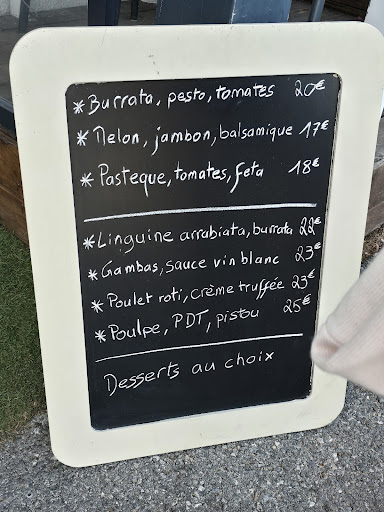 * Burrata, pesto, tomates 20€
* Melon, jambon, balsamique 17€
* Pasteque, tomates, feta 18€
* Linguine arrabiata, burrata 22€
* Gambas, sauce vin blanc 23€
* Poulet roti, crème truffée 23€
* Poulpe, PDT, pistou 25€
Desserts au choix